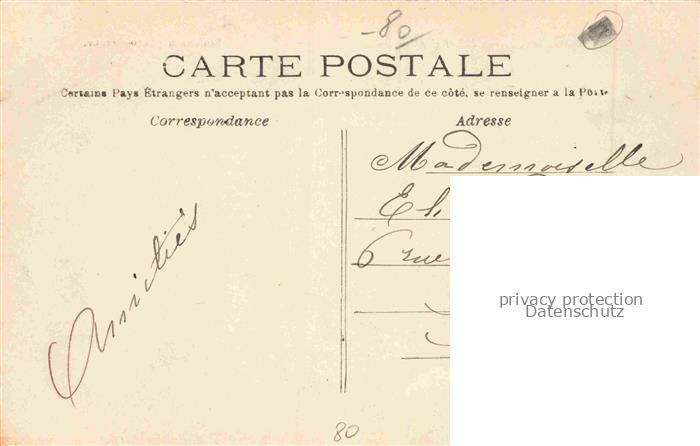 80
CARTE POSTALE
Certains Pays Étrangers n'acceptant pas la Correspondance de ce côté, se renseigner a la Poste
Correspondance
Adresse
Mademoiselle
6 rue
Amitiés
privacy protection
Datenschutz
80